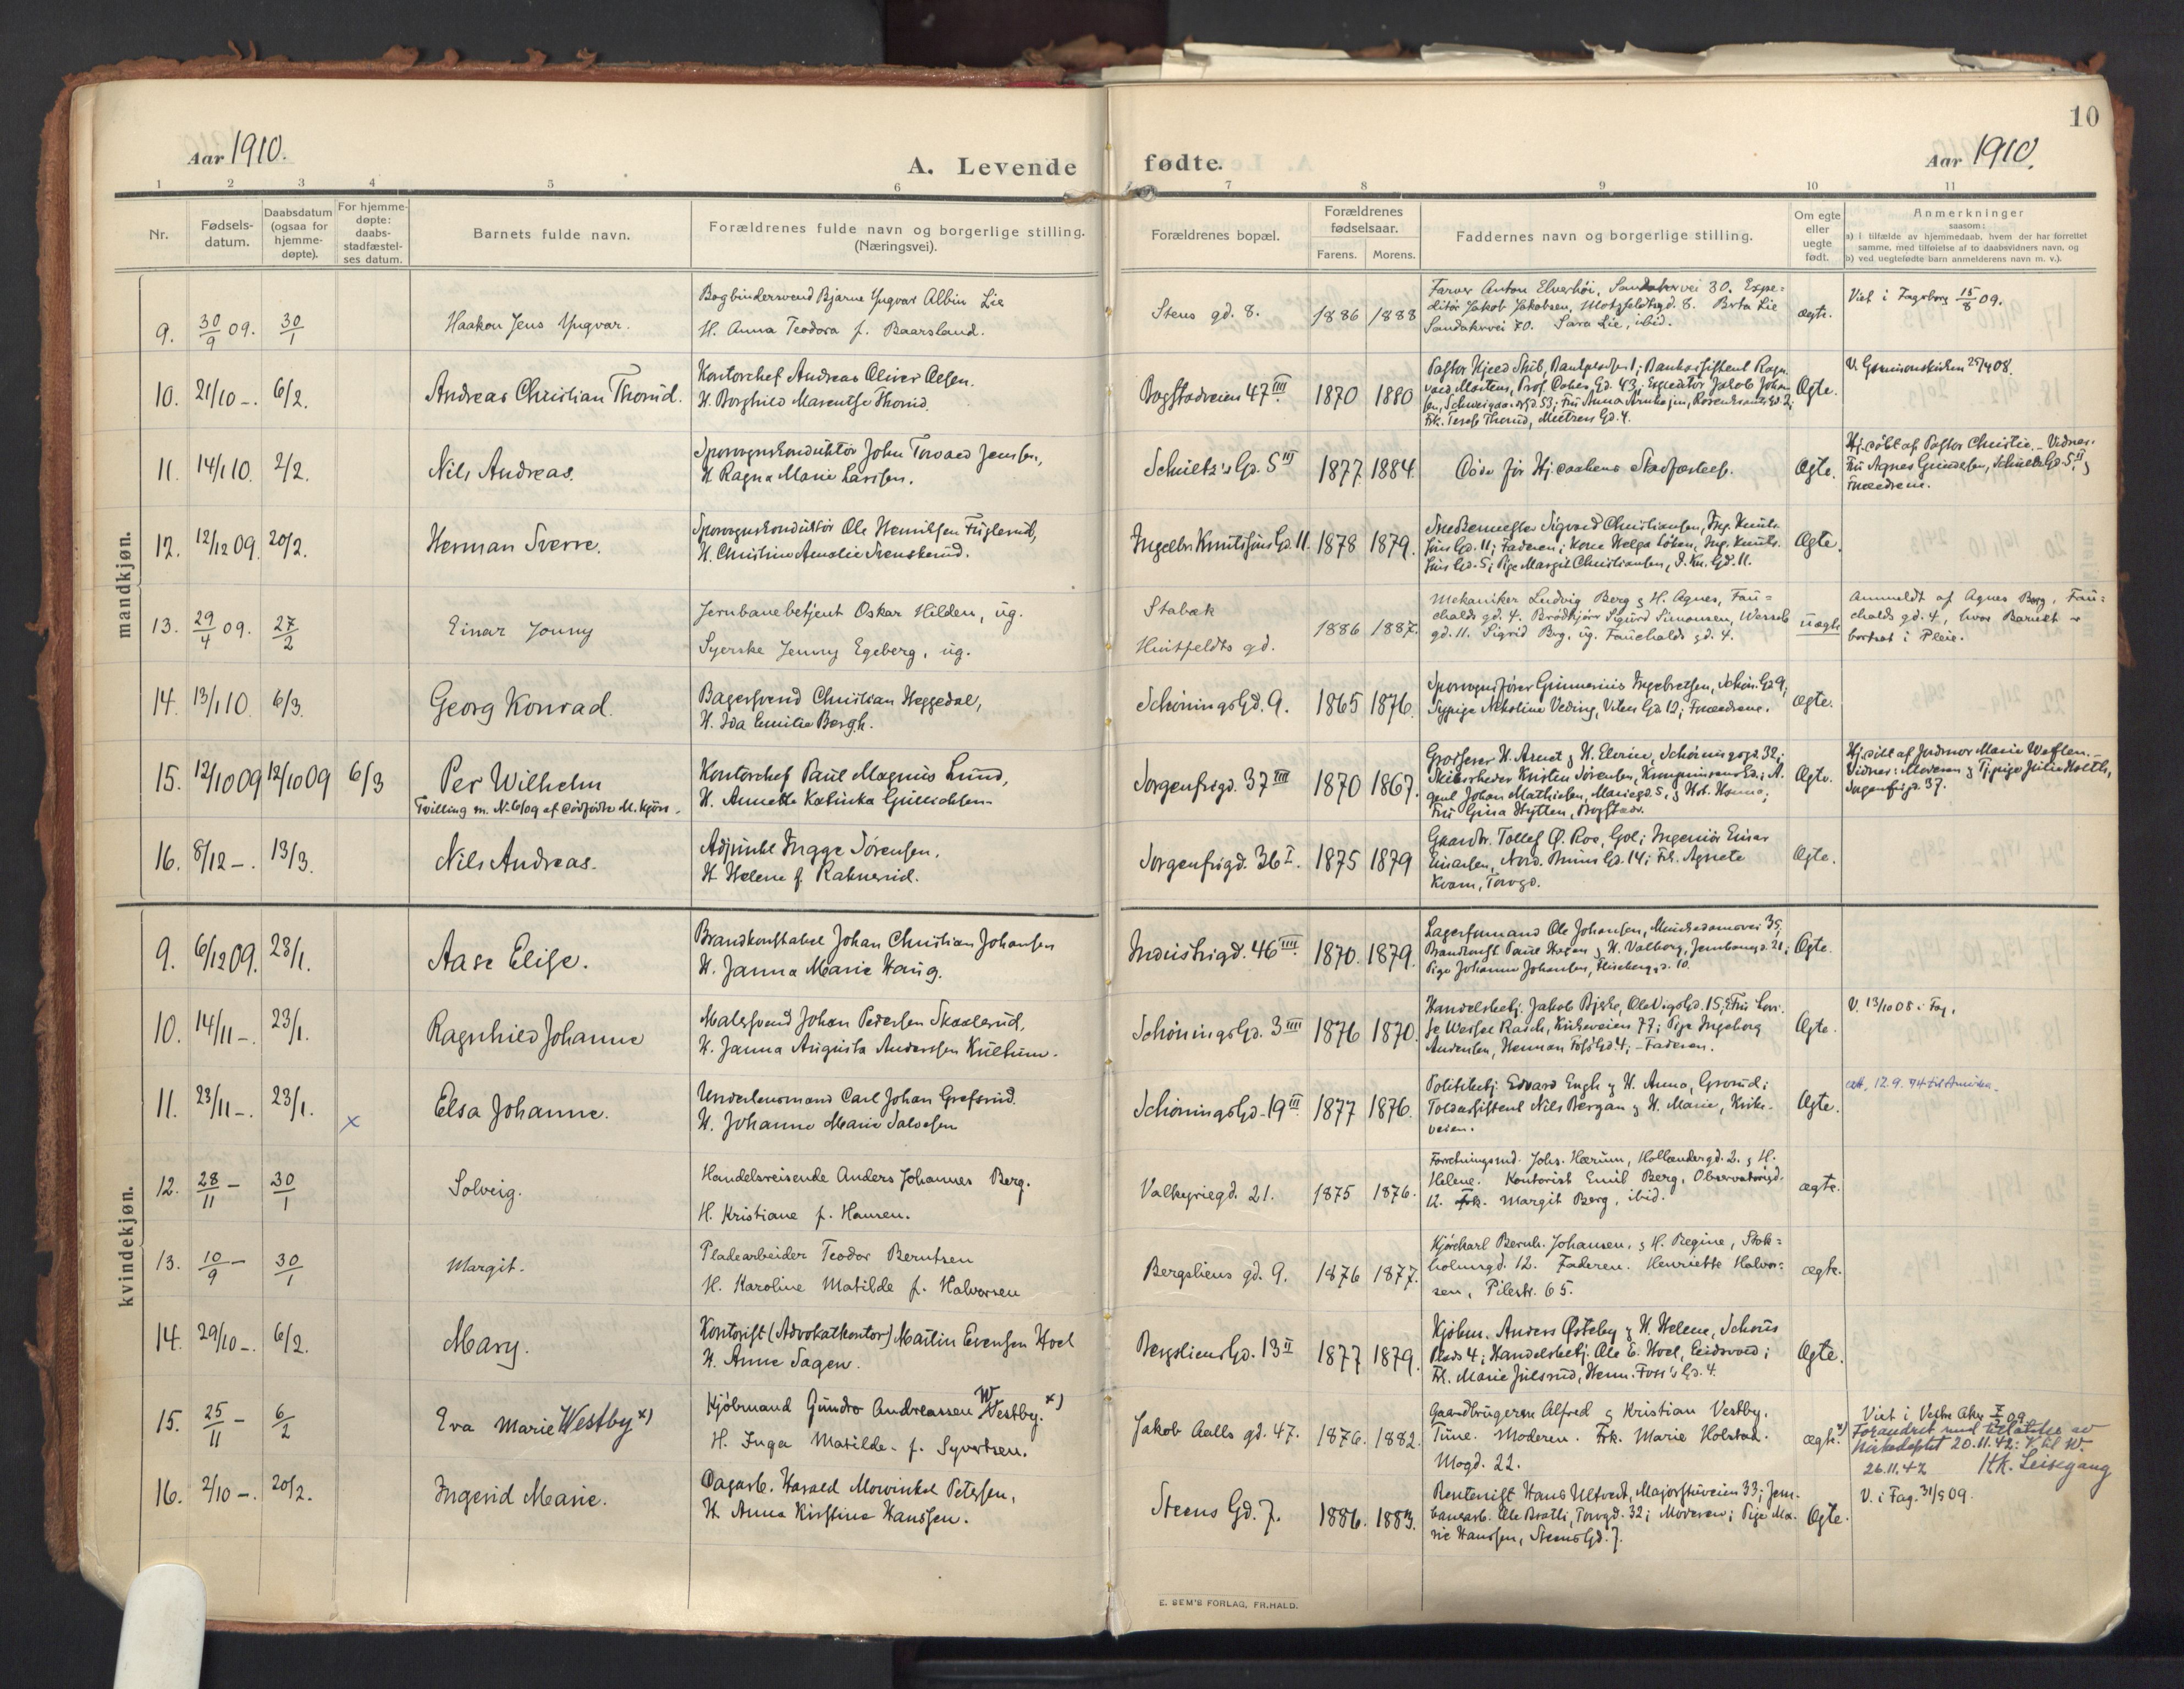 10
Aar 1910.
A. Levende fødte.
Aar 1910.
1 2 3 4 5 6 7 8 9 10 11
Nr.
Fødsels-
datum.
Daabsdatum
(ogsaa for
hjemme-
døpte).
For hjemme-
døpte:
daabs-
stadfæstel-
ses datum.
Barnets fulde navn.
Forældrenes fulde navn og borgerlige stilling.
(Næringsvei).
Forældrenes bopæl.
Forældrenes
fødselsaar.
Farens. Morens.
Faddernes navn og borgerlige stilling.
Om egte
eller
uegte
født.
Anmerkninger
saasom:
a) i tilfælde av hjemmedaab, hvem der har forrettet
samme, med tilføielse af to daabsvidners navn, og
b) ved uegtefødte barn anmelderens navn m. v.).
mandkjøn.
9. 30/9 09. 30/1
Haakon Jens Yngvar.
Bogbindersvend Bjarne Yngvar Albin Lie
H. Anna Teodora f. Baarsland.
Stens gd. 8. 1886 1888
Farver Anton Elverhöi, Sandakervei 30. Expe=
ditör Jakob Jakobsen, Motzfeldtsgd. 8. Berta Lie
Sandakervei 70. Sara Lie, ibid.
ægte.
Viet i Fagerborg 15/8 09.
10. 21/10 -. 6/2.
Andreas Christian Thorud.
Kontorchef Andreas Oliver Olsen.
H. Borghild Marentse Thorud.
Bogstadveien 47 III. 1870 1880
Ægte.
11. 14/1 10. 2/2.
Nils Andreas.
Sporvognskonduktör John Torvald Jenssen,
H. Ragna Marie Larssen.
Schultz's Gd. 5 III 1877. 1884.
Döde för Hj.daabens Stadfæstelse.
Ægte.
Hj.döbt af Pastor Christie. - Vidner:
Fru Agnes Gundersen, Schultz Gd. 5 II &
Forældrene.
12. 12/12 09. 20/2.
Herman Sverre.
Sporvognskonduktör Ole Henriksen Fuglerud,
H. Christine Amalie Svenskerud.
Ingelbr. Knutssöns Gd. 11. 1878 1879.
Snedkermester Sigvard Christiansen, Ing. Knuts-
söns Gd. 11; Faderen; Kone Helga Löken, Ing. Knuts-
söns Gd. 5; Pige Margit Christiansen, I. Kn. Gd. 11.
Ægte.
13. 29/4 09. 27/2
Einar Jonny
Jernbanebetjent Oskar Hilden, ug.
Syerske Jenny Egeberg, ug.
Stabæk
Huitfeldts gd. 1886 1887.
Mekaniker Ludvig Berg & H. Agnes, Fau=
chalds gd. 4. Brödkjörer Sigurd Simonsen, Wessels
gd. 11. Sigrid Berg, ug. Fauchalds gd. 4.
uægte
Anmeldt af Agnes Berg, Fau=
chalds gd. 4, hvor Barnet er
bortsat i Pleie.
14. 13/1 10. 6/3.
Georg Konrad.
Bagersvend Christian Heggedal,
H. Ida Emilie Bergh.
Schöningsgd. 9. 1865 1876.
Sporvognsförer Gunnerius Ingebretsen, Schön. Gd 9;
Sypige Nikoline Veding, Vibes Gd. 12; Forældrene.
ægte.
15. 12/10 09 12/10 09 6/3
Per Wilhelm
Tvilling m. N. 6/09 af dödfödte M. kjön.
Kontorchef Paul Magnus Lund,
H. Annette Katinka Gullichsen.
Sorgenfrigd. 37 III 1870 1867.
Ægte.
Hj.döbt af Jordmor Marie Wefflen. -
Vidner: Moderen & Tj.pige Julie Holth,
Sorgenfrigd. 37.
16. 8/12 -. 13/3.
Nils Andreas.
Adjunkt Ingge Sörensen,
H. Helene f. Raknerud.
Sorgenfrigd. 36 I. 1875 1879
Gaardbr. Tollef O. Roo, Gol; Ingeniör Einar
Einarsen, Nord. Bruns Gd. 14; Frk. Agnete
Kvam, Torvgd.
Ægte.
kvindekjøn.
9. 6/12 09. 23/1.
Aase Elise.
Brandkonstabel Johan Christian Johansen
H. Janna Marie Haug.
Industrigd. 46 IIII. 1870. 1879.
Lagerformand Ole Johansen, Munkedamsvei 35;
Brandkonst. Paul Hagen & H. Valborg, Jernbanegd. 21;
Pige Johanne Johansen, Heisebergg. 10.
Ægte.
10. 14/11 -. 23/1.
Ragnhild Johanne
Malersvend Johan Pedersen Skaalerud,
H. Janna Augusta Anderssen Kultum.
Schöningsgd. 3 IIII 1876 1870.
Handelsbetj. Jakob Bjerke, Ole Vigs Gd. 15; Fru Lovi-
se Wessel Rasch, Kirkeveien 77; Pige Ingeborg
Andersen, Herman Foss' Gd. 4; - Faderen.
Ægte.
V. 13/10 08 i Fag.
11. 23/11 -. 23/1. x
Elsa Johanne.
Underlensmand Carl Johan Grefsrud.
H. Johanne Marie Salvesen
Schöningsgd. 19 III 1877 1876.
Politibetj. Edvard Engh & H. Anna, Grorud;
Toldassistent Nils Bergan & H. Marie, Kirke-
veien.
Ægte.
att. 12.9.74 til Amerika
12. 28/11 - 30/1
Solveig.
Handelsreisende Anders Johannes Berg.
H. Kristiane f. Hansen.
Valkyriegd. 21. 1875 1876.
Forretningsmd. Johs. Hærum, Hollændergd. 2. & H.
Helene. Kontorist Emil Berg, Observatoriegd.
12. Frk. Margit Berg, ibid.
ægte.
13. 10/9 - 30/1
Margit.
Pladearbeider Teodor Berntsen
H. Karoline Matilde f. Halvorsen
Bergsliens gd. 9. 1876 1877.
Kjörekarl Bernh. Johansen, & H. Regine, Stok=
holmsgd. 12. Faderen. Henriette Halvor=
sen, Pilestr. 65.
ægte.
14. 29/10 -. 6/2.
Mary.
Kontorist (Advokatkontor) Martin Evensen Hoel
H. Anne Sagen.
Bergsliens Gd. 13 II 1877 1879.
Kjöbm. Anders Østeby & H. Helene, Schous
Plads 4; Handelsbetj. Ole E. Hoel, Eidsvold;
Frk. Marie Julsrud, Herm. Foss's Gd. 4.
Ægte.
15. 25/11 - 6/2
Eva Marie Westby x)
Kjöbmand Gundro Andreassen W Vestby. x)
H. Inga Matilde f. Syvertsen.
Jakob Aalls gd. 47. 1876. 1882.
Gaardbrugerne Alfred & Kristian Vestby,
Tune. Moderen. Frk. Marie Holstad.
Mogd. 22.
ægte.
Viet i Vestre Aker 7/2 09
x) Forandret med tillatelse av
Kirkedeptet 20.11.42: V til W.
26.11.42 Hk. Leisegang
16. 2/10 -. 20/2.
Ingerid Marie.
Dagarb. Harald Mowinkel Petersen,
H. Anna Kirstine Hanssen.
Steens Gd. 7. 1886. 1883.
Rentenist Hans Ultvedt, Majorstuveien 33; Jern-
banearb. Ole Bratli, Torvgd. 32; Moderen; Pige Ma-
rie Hanssen, Steens Gd. 7.
Ægte.
V. i Fag. 31/5 09.
E. SEM'S FORLAG, FR.HALD.